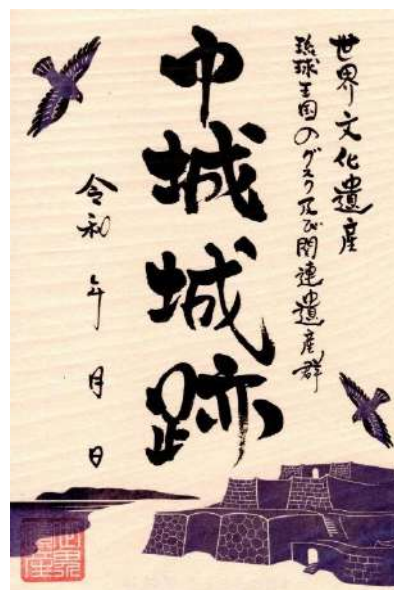 世界文化遺産
琉球王国のグスク及び関連遺産群
中城城跡
令和 年 月 日
世界遺産